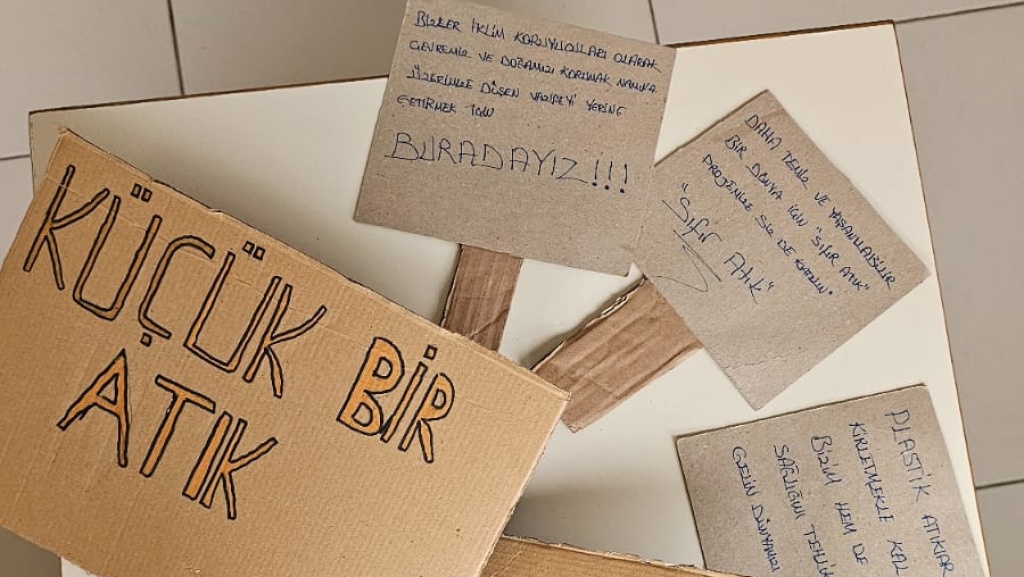 KÜÇÜK BİR
ATIK
BİZLER İKLİM KORUYUCULARI OLARAK
ÇEVREMİZ VE DOĞAMIZI KORUMAK NAMINA
ÜZERİMİZE DÜŞEN VAZİFEYİ YERİNE
GETİRMEK İÇİN
BURADAYIZ!!!
DAHA TEMİZ VE YAŞANILABİLİR
BİR DÜNYA İÇİN "SIFIR ATIK"
PROJEMİZE SİZ DE KATILIN"
"Sıfır Atık"
PLASTİK ATIKLAR
KİRLETMEKLE KAL
BİZİM HEM DE
SAĞLIĞINI TEHLİK
GELİN DÜNYAMIZI